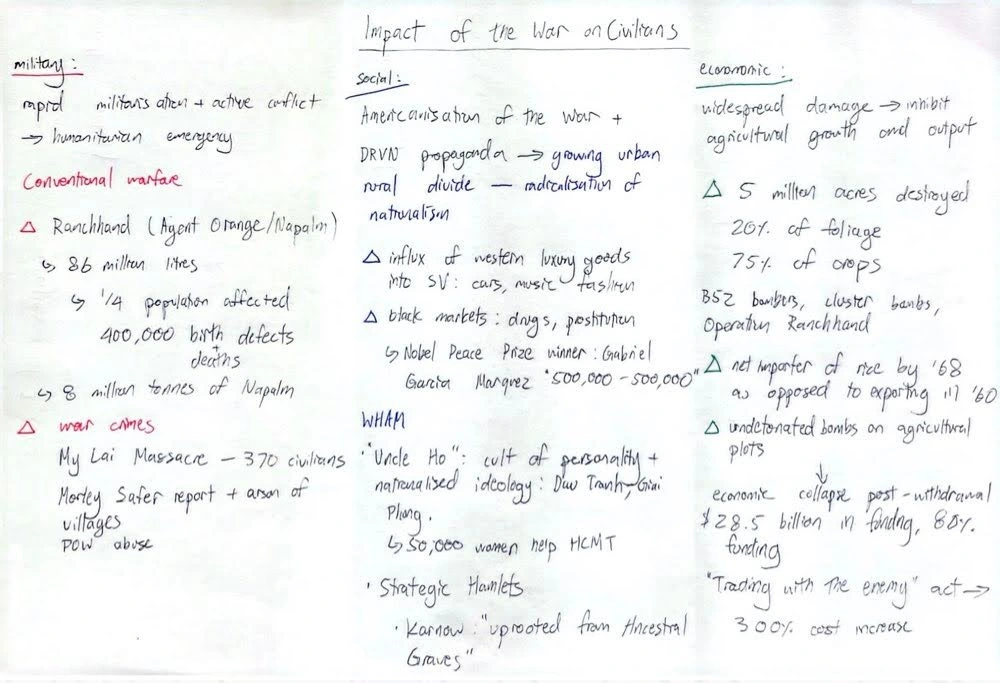 Impact of the War on Civilians
military:
rapid militarisation + active conflict
→ humanitarian emergency
Conventional warfare
△ Ranchhand (Agent Orange/Napalm)
↳ 86 million litres
↳ 1/4 population affected
400,000 birth defects
+
deaths
↳ 8 million tonnes of Napalm
△ war crimes
My Lai Massacre – 370 civilians
Morley Safer report + arson of
villages
POW abuse
social:
Americanisation of the War +
DRVN propaganda → growing urban
rural divide – radicalisation of
nationalism
△ influx of western luxury goods
into SV: cars, music fashion
△ black markets: drugs, prostitution
↳ Nobel Peace Prize winner: Gabriel
Garcia Marquez "500,000 – 500,000"
WHAM
· "Uncle Ho": cult of personality +
nationalised ideology: Dau Tranh, Giai
Phong.
↳ 50,000 women help HCMT
· Strategic Hamlets
· Karnow: "uprooted from Ancestral
Graves"
economic:
widespread damage → inhibit
agricultural growth and output
△ 5 million acres destroyed
20% of foliage
75% of crops
B52 bombers, cluster bombs,
Operation Ranchhand
△ net importer of rice by '68
as opposed to exporting in '60
△ undetonated bombs on agricultural
plots
↓
economic collapse post-withdrawal
$28.5 billion in funding, 80%
funding
"Trading with the enemy" act →
300% cost increase